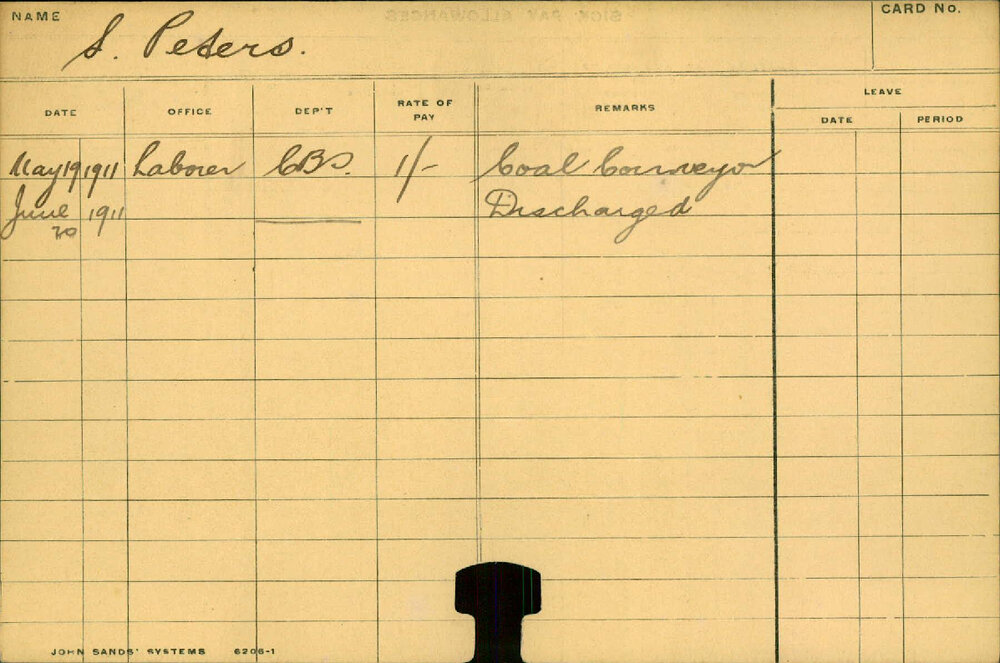 NAME S. Peters. CARD No.
DATE OFFICE DEP'T RATE OF PAY REMARKS LEAVE
DATE PERIOD
May 19 1911 Laborer CBS. 1/- Coal Conveyor
June 20 1911 Discharged
JOHN SANDS' SYSTEMS 6206-1